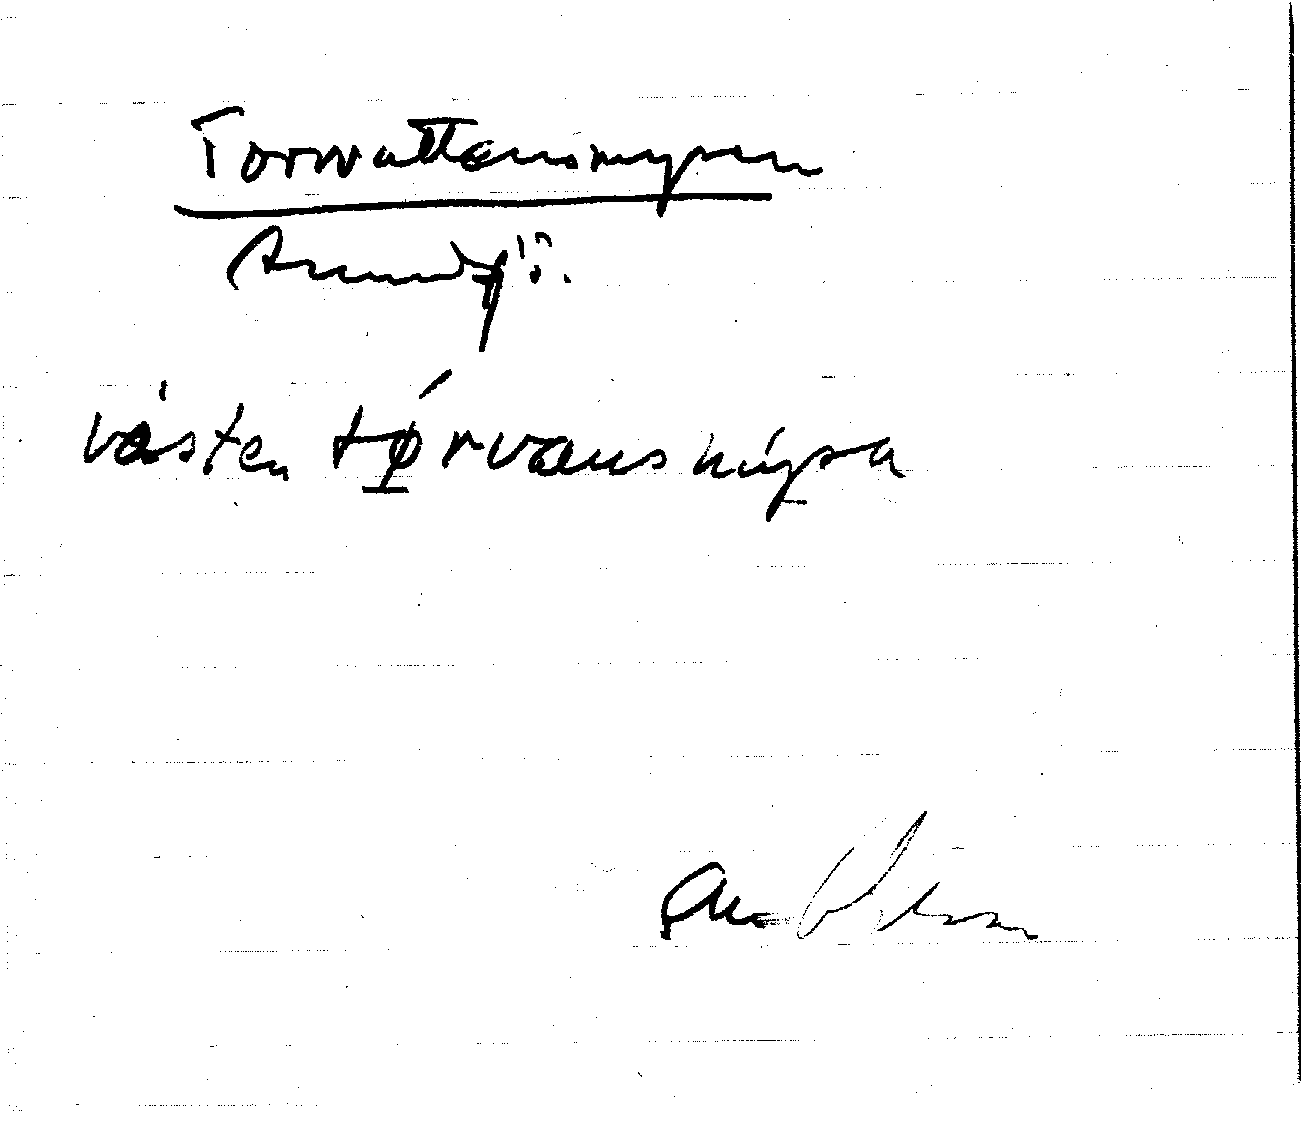 Torvattensmyren
Arundsjö.
västen tǿrvansmýra